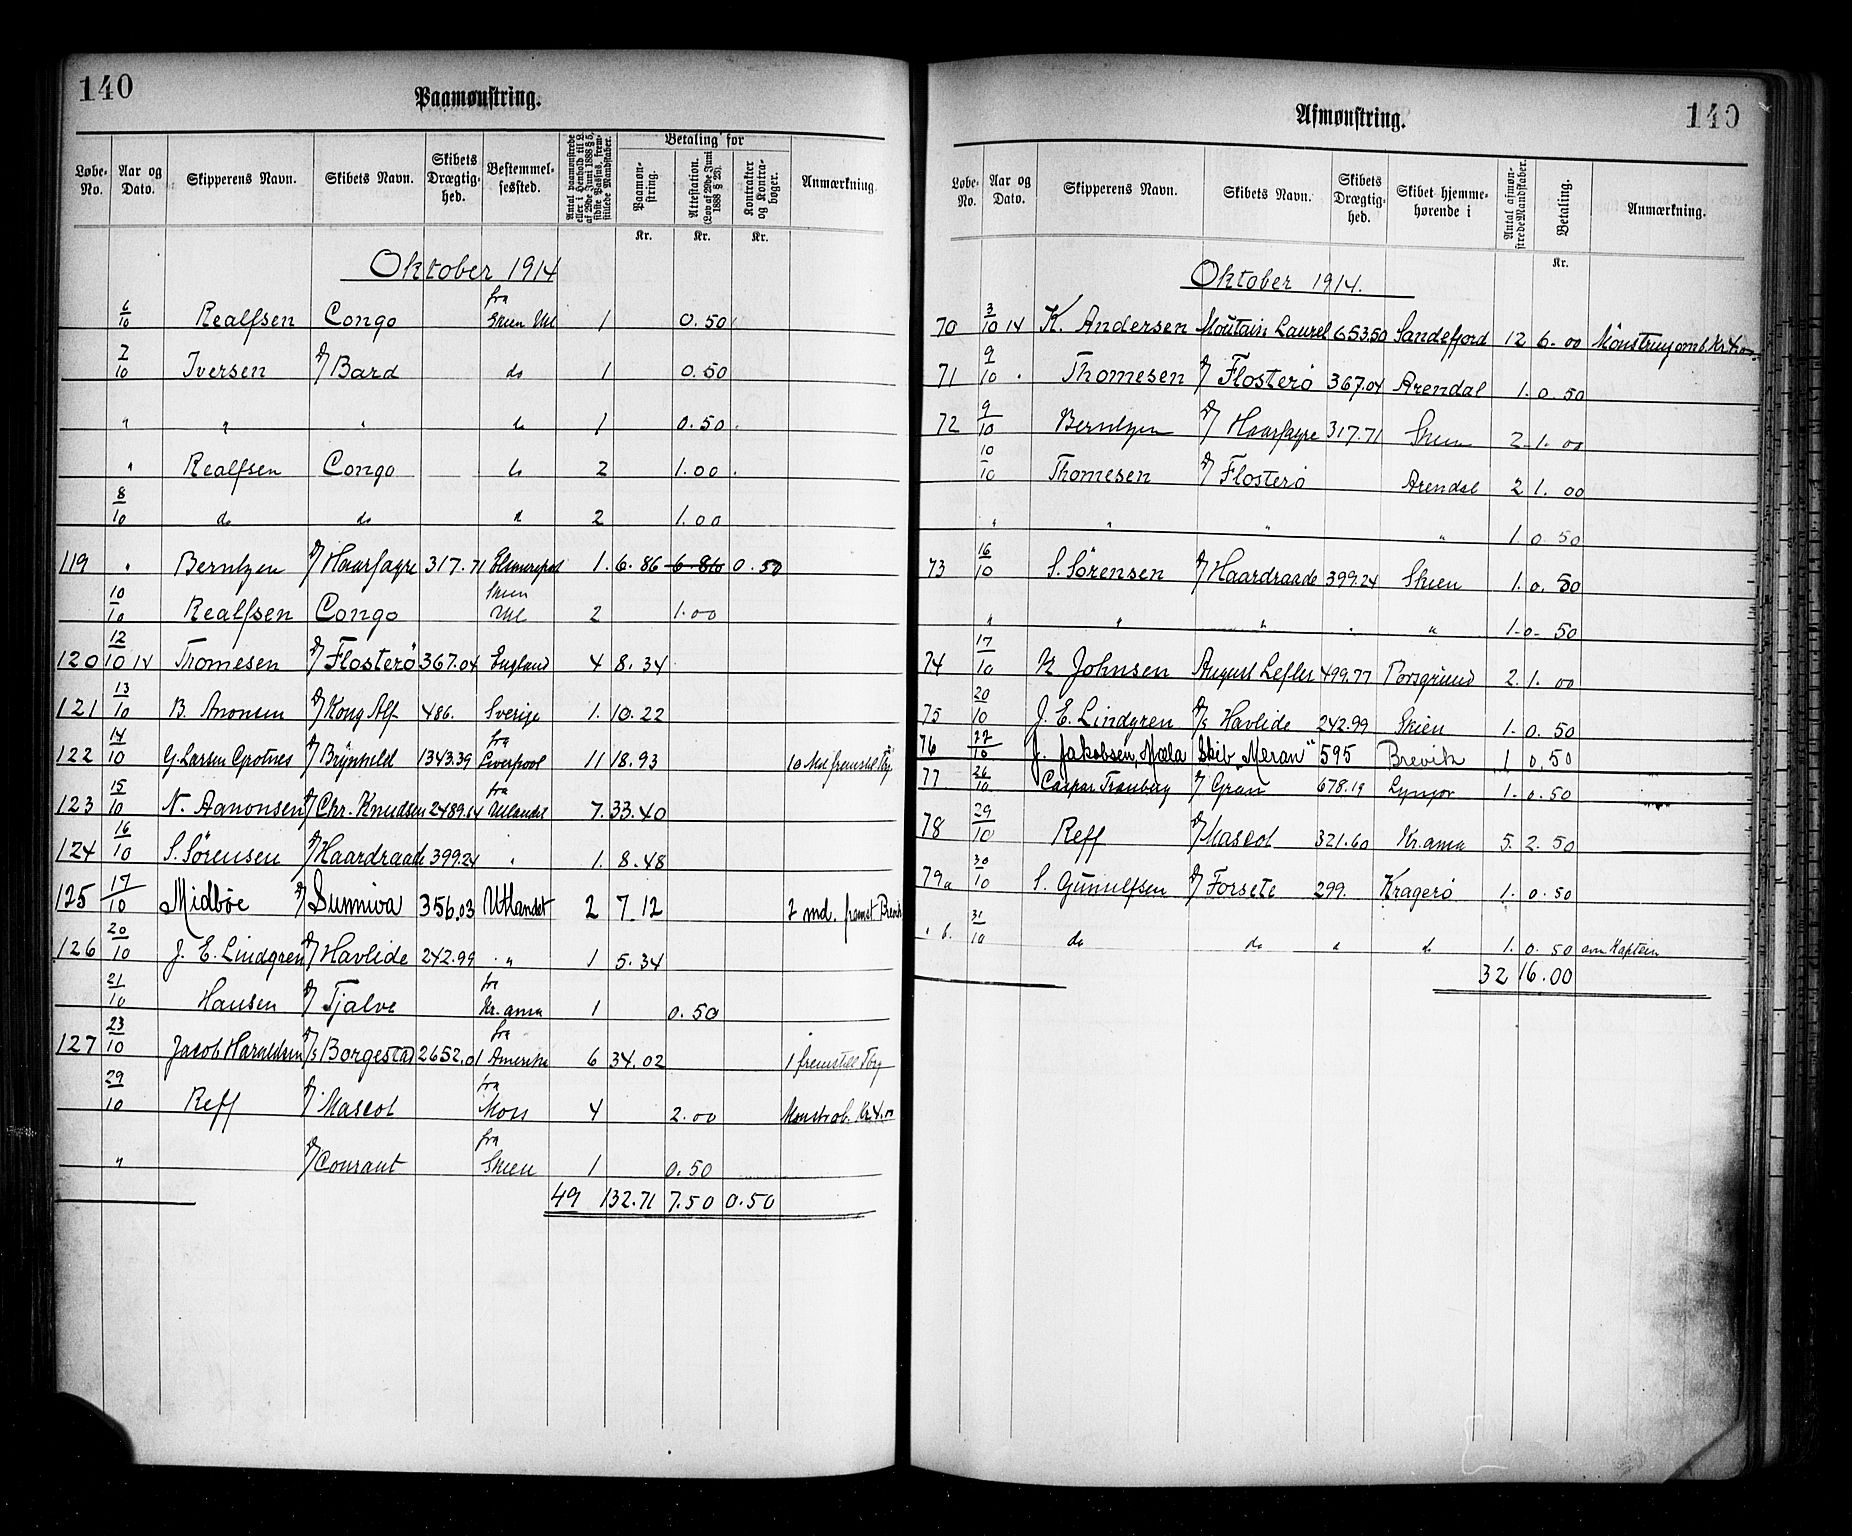 140
Paamønstring.
Løbe-No. | Aar og Dato. | Skipperens Navn. | Skibets Navn. | Skibets Drægtighed. | Bestemmelsessted. | Antal paamønstrede eller i Henhold til L. af 29de Juni 1888 § 5, sidste Passus, fremstillede Mandskaber. | Betaling for | Paamønstring. | Attestation. (Lov af 29de Juni 1888 § 23). | Kontrakter og Kontrabøger. | Anmærkning.
Kr. | Kr. | Kr.
Oktober 1914
6/10 Realfsen Congo fra Skien Utl 1 0.50
7/10 Iversen D/ Bard do 1 0.50
" " " do 1 0.50
" Realfsen Congo do 2 1.00
8/10 do do d 2 1.00
119 " Berntzen D/ Haarfagre 317.71 1. 6.86 6.86 0.50
10/10 Realfsen Congo Skien Utl 2 1.00
120 12/10 14 Thomesen D/ Flosterö 367.04 England 4 8.34
121 13/10 B. Aronsen D/ Kong Alf 486. Sverige 1. 10.22
122 14/10 G. Larsen Grotnes D/ Brynhild 1343.39 fra Liverpool 11 18.93
123 15/10 N. Aanonsen D/ Chr. Knudsen 2489.64 fra Utlandet 7. 33.40
124 16/10 S. Sörensen D/ Haardraade 399.24 " 1. 8.48
125 17/10 Midböe D/ Sunniva 356.03 Utlandet 2 7.12 2 md. fremst Brevik
126 20/10 J. E. Lindgren D/ Havlide 242.99 " 1 5.34
21/10 Hansen D/ Tjalve fra Kr.ania 1 0.50
127 23/10 Jacob Haraldsen D/s Borgestad 2652.01 fra Amerika 6 34.02 1 fremstill
29/10 Reff D/ Mascot fra Moss 4 2.00 Monstr.ob. Kr. 4.00
" D/ Courant fra Skien 1 0.50
49 132.71 7.50 0.50
140
Afmønstring.
Løbe-No. | Aar og Dato. | Skipperens Navn. | Skibets Navn. | Skibets Drægtighed. | Skibet hjemmehørende i | Antal afmønstrede Mandskaber. | Betaling. | Anmærkning.
Kr.
Oktober 1914.
70 3/10 14 K. Andersen Moutain Laurel 653.50 Sandefjord 12 6.00
71 9/10 Thomesen D/ Flosterö 367.04 Arendal 1. 0.50
72 9/10 Berntzen D/ Haarfagre 317.71 Skien 2 1.00
10/10 Thomesen D/ Flosterö Arendal 2 1.00
" " " " 1. 0.50
73 16/10 S. Sörensen D/ Haardraade 399.24 Skien 1. 0.50
" " " " " 1. 0.50
74 17/10 K Johnsen August Lefler 499.77 Porsgrund 2. 1.00
75 20/10 J. E. Lindgren D/s Havlide 242.99 Skien 1. 0.50
76 22/10 J. Jakobsen, Mæla Skib "Meran" 595 Brevik 1 0.50
77 26/10 Caspar D/ Gran 678.19 Lyngör 1. 0.50
78 29/10 Reff D/ Mascot 321.60 Kr.ania 5. 2.50
79a 30/10 S. Gunulfsen D/ Forsete 299. Kragerö 1. 0.50
" b. 31/10 do do " do 1. 0.50 om Kaptein
32 16.00